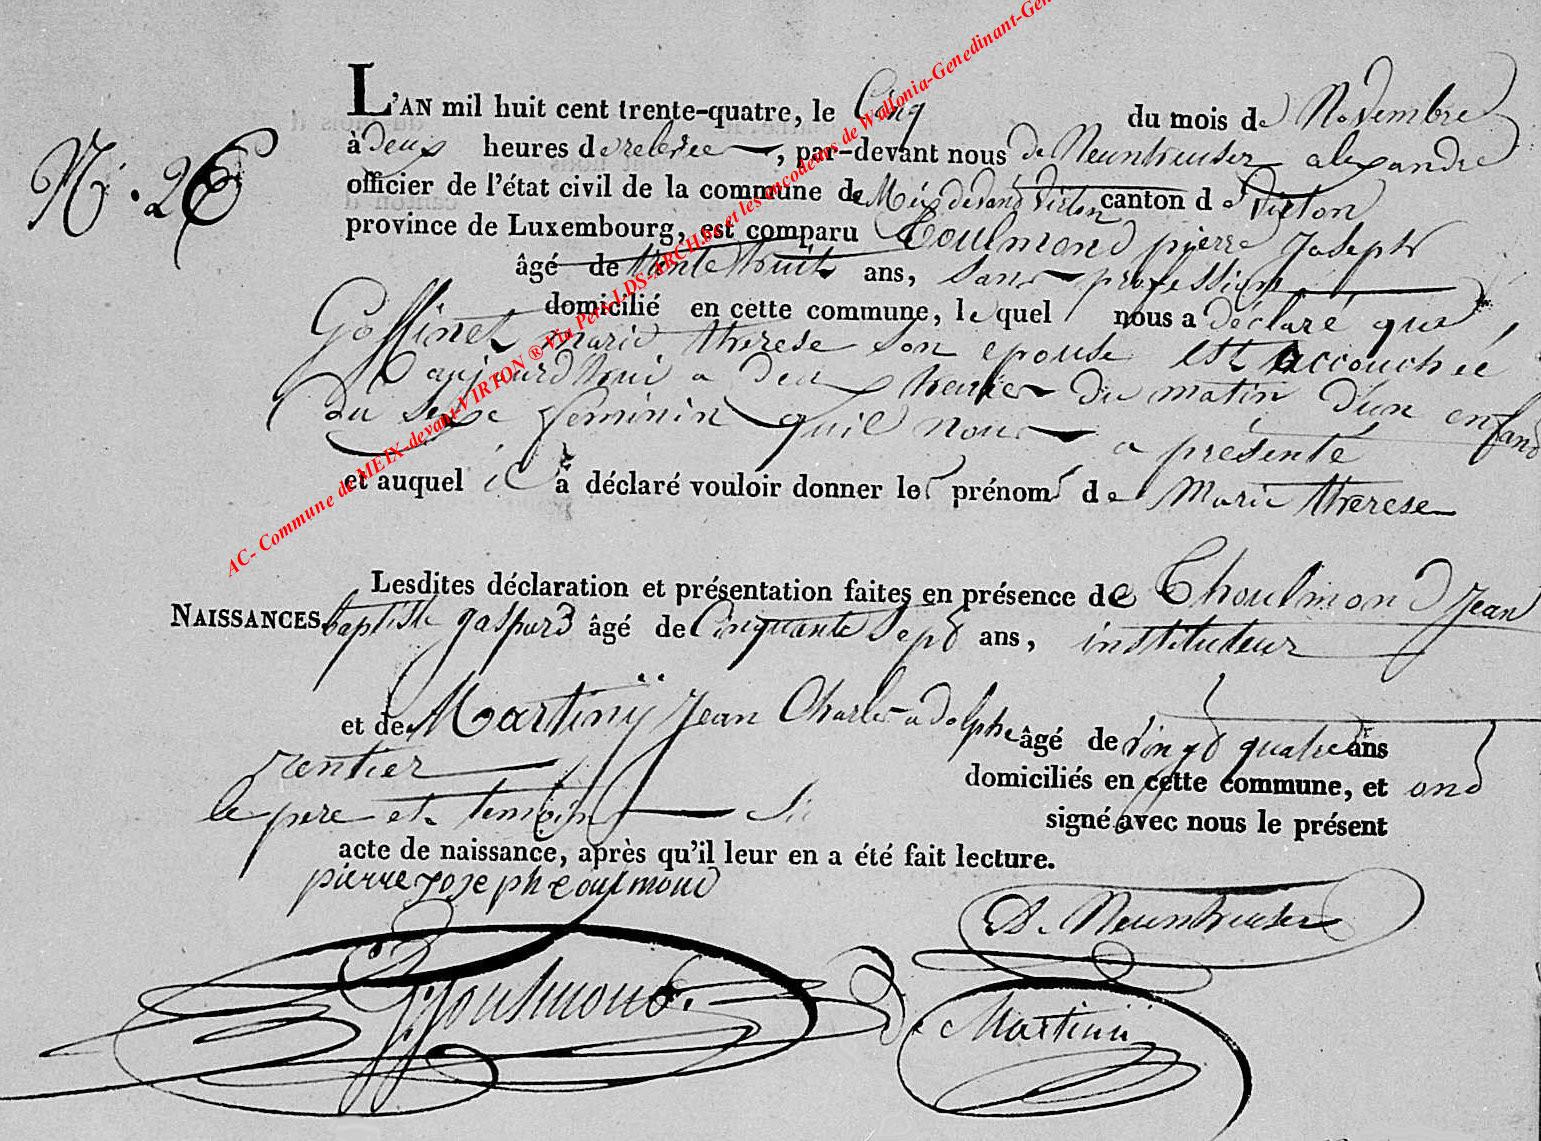 N.° 26
L'AN mil huit cent trente-quatre, le Cinq du mois de Novembre
à deux heures de relevée, par-devant nous de Neunheuser alexandre
officier de l'état civil de la commune de Meix devand Virton canton de Virton
province de Luxembourg, est comparu Coulmond pierre Joseph
âgé de trente huit ans, sans profession
domicilié en cette commune, le quel nous a déclaré que
Goffinet marie therese son epouse est accouchée
aujourdhui a deux heures du matin d'un enfand
du sexe feminin quil nous a présenté
et auquel il a déclaré vouloir donner les prénoms de Marie therese
Lesdites déclaration et présentation faites en présence de Choulmond Jean
NAISSANCES. baptiste gaspard âgé de Cinquante Sept ans, instituteur
et de Martinÿ Jean Charles adolphe âgé de vingt quatre ans
rentier domiciliés en cette commune, et ond
le pere et temoin signé avec nous le présent
acte de naissance, après qu'il leur en a été fait lecture.
pierre joseph coulmond
A. Neunheuser
Martinÿ
AC- Commune de MEIX-devant-VIRTON ® Via Petit LDS-ARCH.be et les encodeurs de Wallonia-Genedinant-Gen